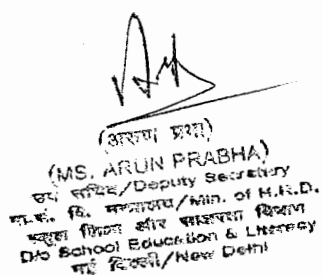 (अरुण प्रभा)
(MS. ARUN PRABHA)
उप सचिव/Deputy Secretary
मा.सं. वि. मन्त्रालय/Min. of H.R.D.
स्कूल शिक्षा और साक्षरता विभाग
D/o School Education & Literacy
नई दिल्ली/New Delhi